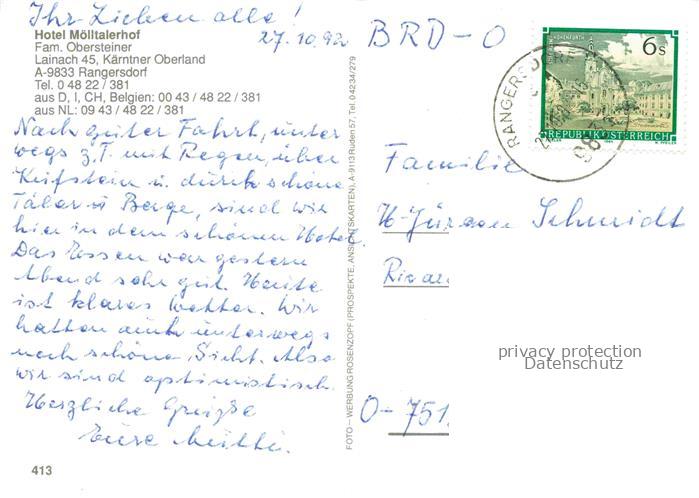 Ihr Lieben alle!
27.10.92
Hotel Mölltalerhof
Fam. Obersteiner
Lainach 45, Kärntner Oberland
A-9833 Rangersdorf
Tel. 0 48 22 / 381
aus D, I, CH, Belgien: 00 43 / 48 22 / 381
aus NL: 09 43 / 48 22 / 381
Nach guter Fahrt, unter
wegs z.T. mit Regen, über
Kufstein u. durch schöne
Täler u Berge, sind wir
hier in dem schönen Hotel.
Das Essen war gestern
Abend sehr gut. Heute
ist klares Wetter. Wir
hatten auch unterwegs
noch schöne Sicht. Also
wir sind optimistisch.
Herzliche Grüße
Eure Mutti.
413
FOTO – WERBUNG ROSENZOPF (PROSPEKTE, ANSICHTSKARTEN), A-9113 Ruden 57, Tel. 0 42 34/279
BRD-O
6s
REPUBLIK ÖSTERREICH
RANGERSDORF
Familie
H-Jürgen Schmidt
privacy protection
Datenschutz
O-751